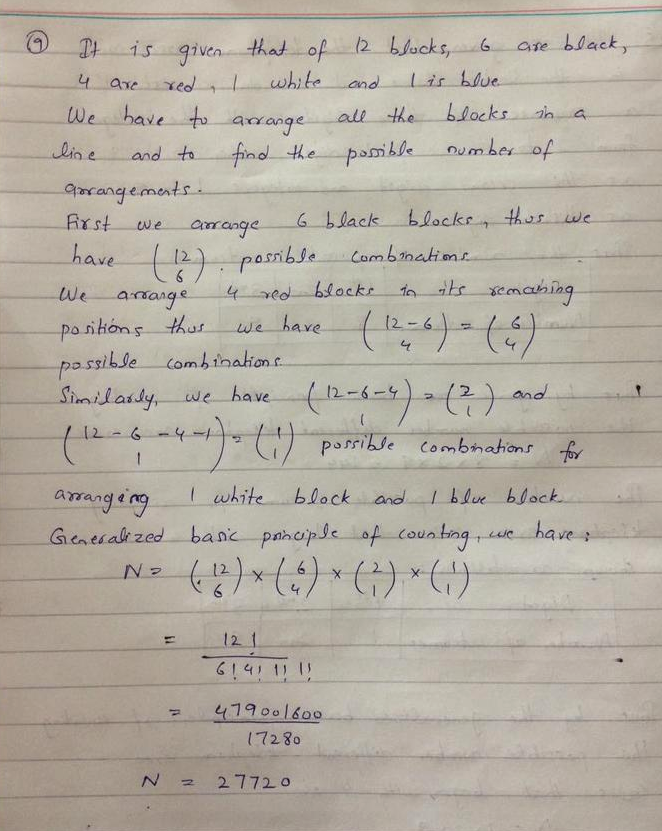 (9) It is given that of 12 blocks, 6 are black,
4 are red, 1 white and 1 is blue
We have to arrange all the blocks in a
line and to find the possible number of
arrangements.
First we arrange 6 black blocks, thus we
have (12 6). possible combinations
We arrange 4 red blocks in its remaining
positions thus we have (12-6 4) = (6 4)
possible combinations
Similarly, we have (12-6-4 1) = (2 1) and
(12-6-4-1 1) = (1 1) possible combinations for
arranging 1 white block and 1 blue block
Generalized basic principle of counting, we have:
N = (12 6) × (6 4) × (2 1) × (1 1)
= 12! / 6! 4! 1! 1!
= 479001600 / 17280
N = 27720